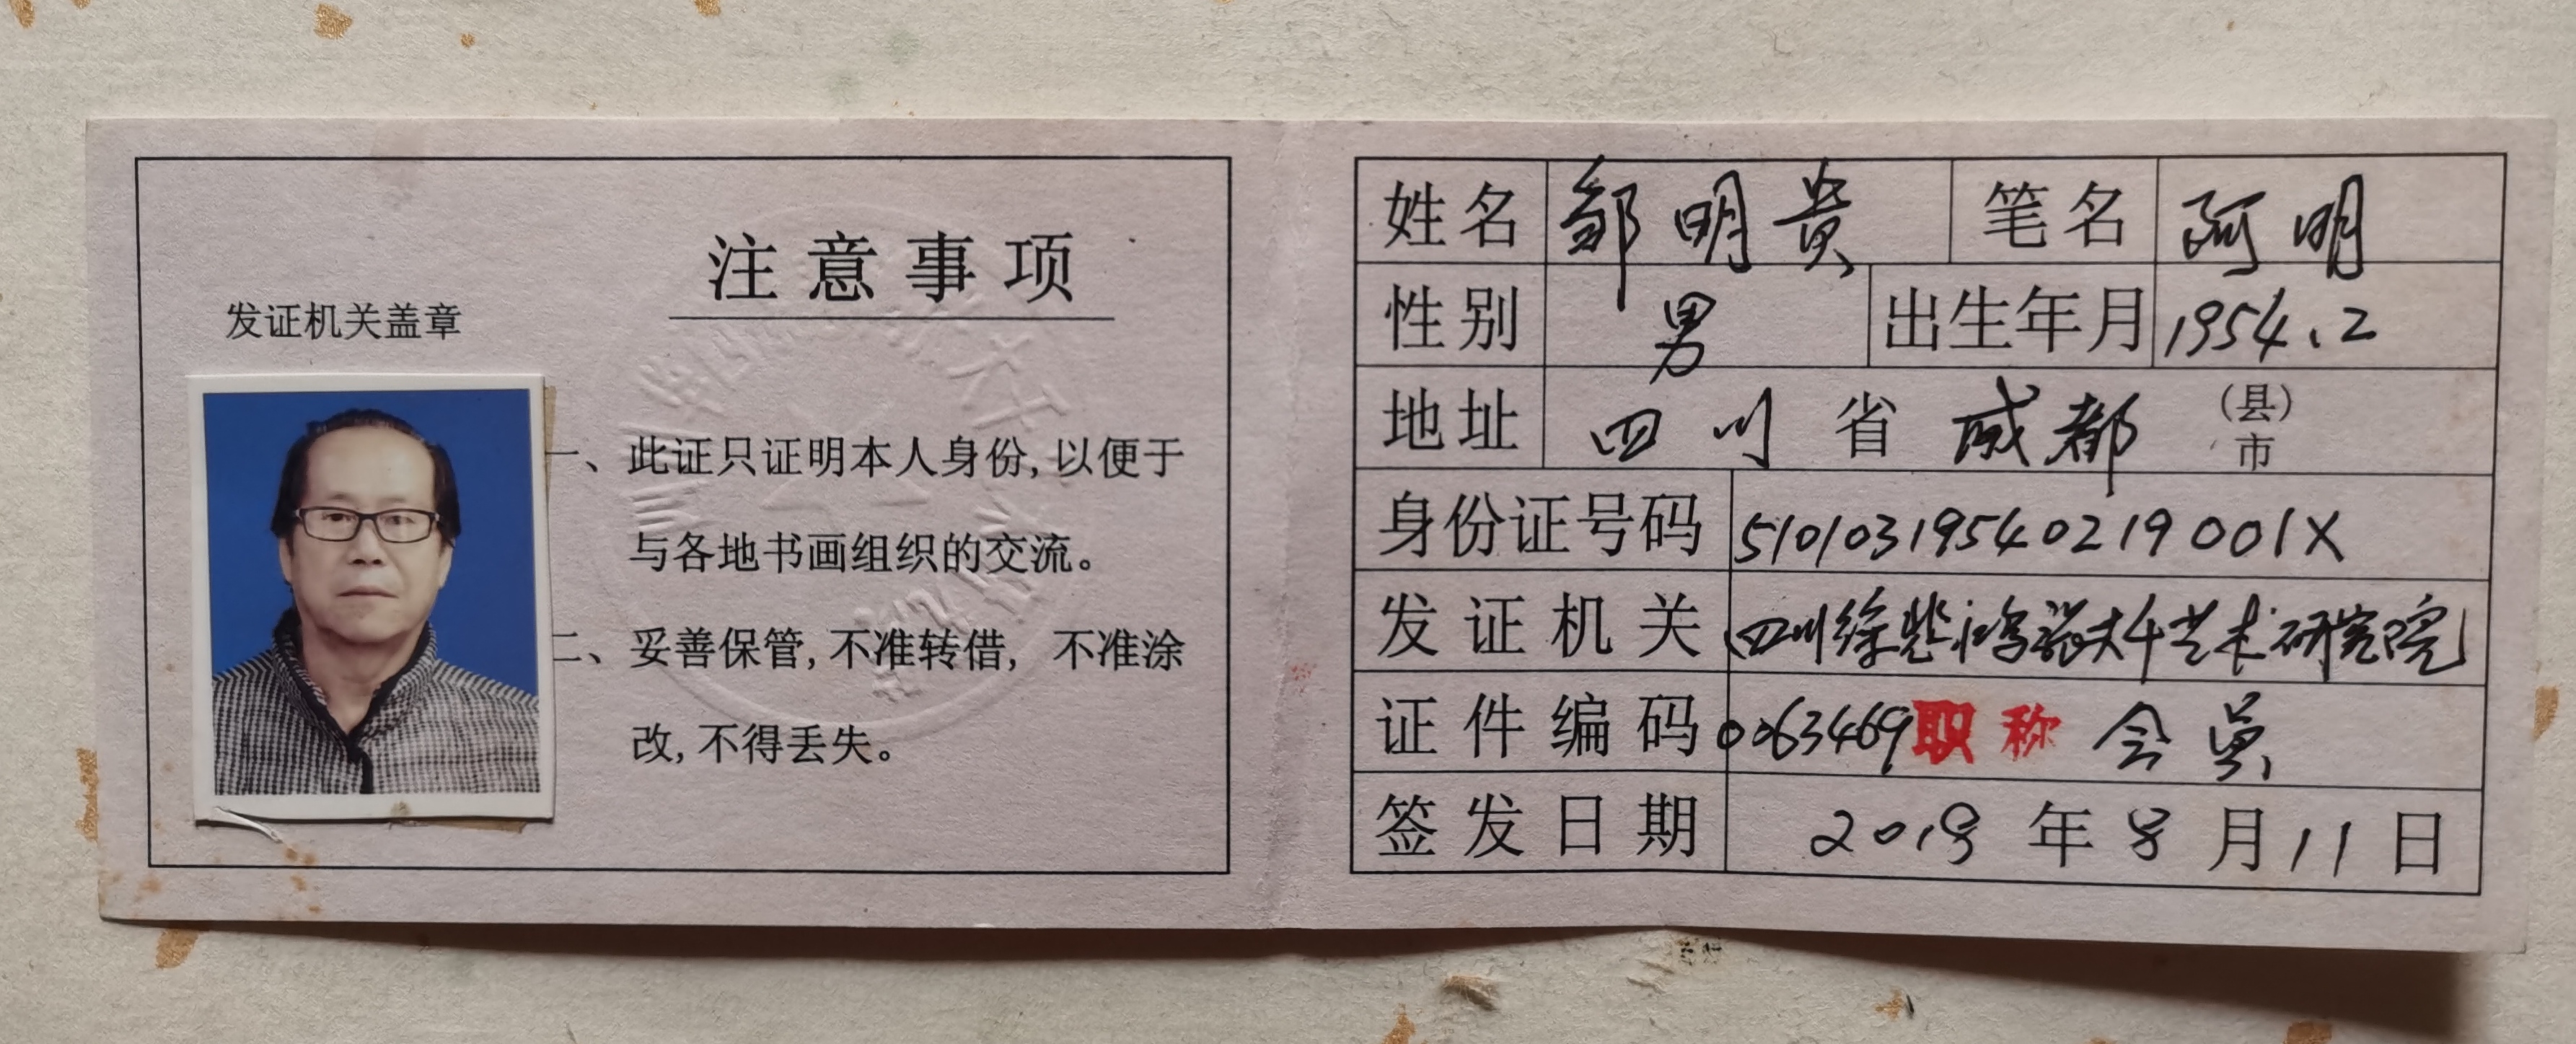 注意事项
发证机关盖章
一、此证只证明本人身份,以便于
与各地书画组织的交流。
二、妥善保管,不准转借, 不准涂
改,不得丢失。
姓名 邹明贵 笔名 阿明
性别 男 出生年月 1954.2
地址 四川 省 成都 (县)市
身份证号码 51010319540219001X
发证机关 四川徐悲鸿张大千艺术研究院
证件编码 0063469 职称 会员
签发日期 2019 年 8 月 11 日